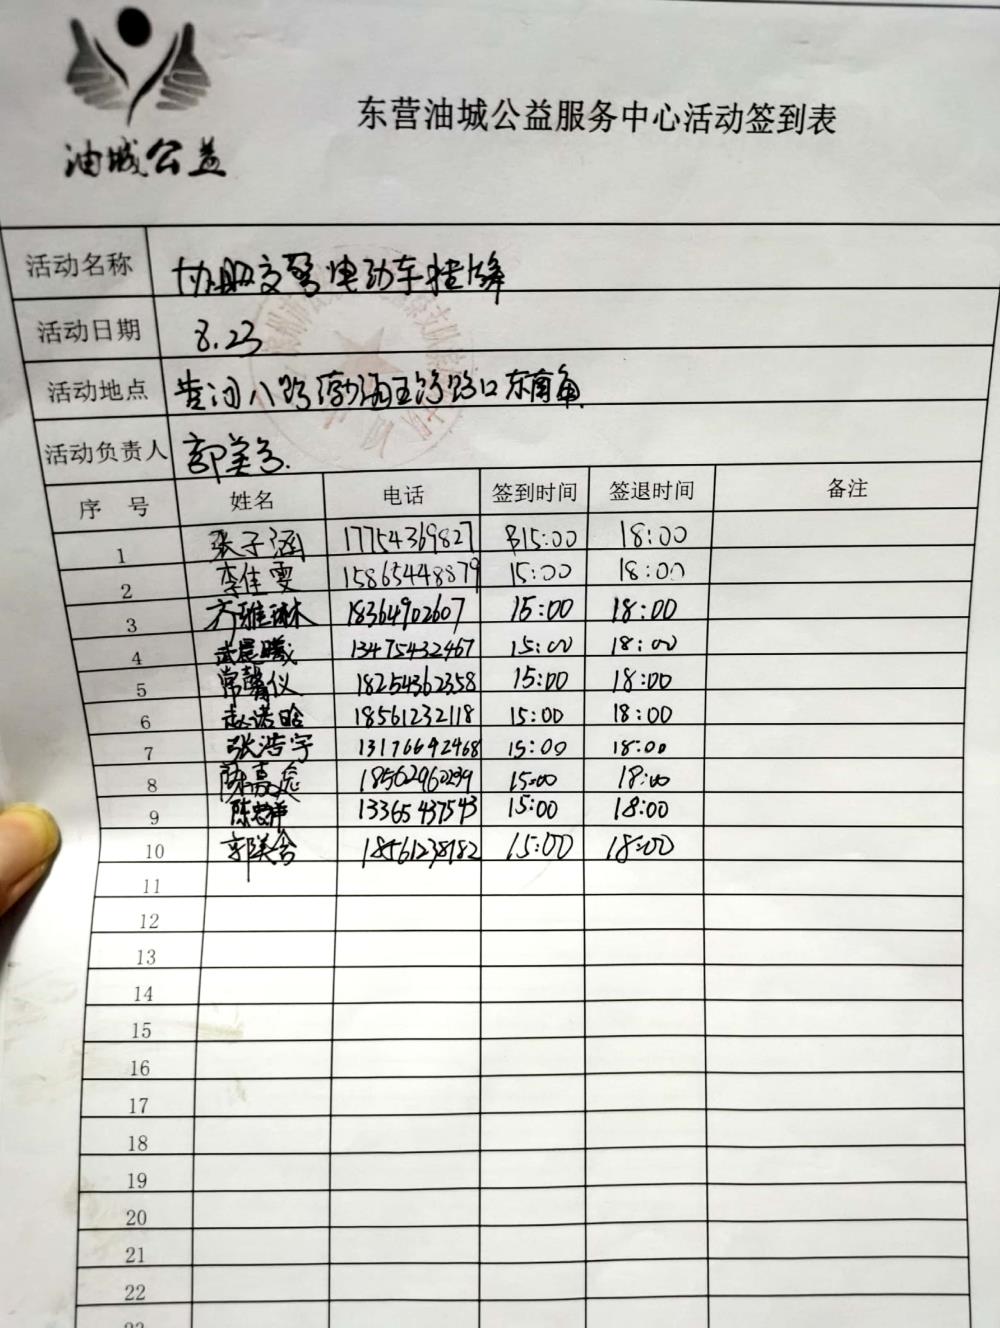 油城公益
东营油城公益服务中心活动签到表
活动名称 协助交警电动车挂牌
活动日期 8.23
活动地点 黄河八路渤海五路路口东南角
活动负责人 郭美含
序号 姓名 电话 签到时间 签退时间 备注
1 张子涵 17754369827 15:00 18:00
2 李佳雯 15865448879 15:00 18:00
3 齐雅琳 18364902607 15:00 18:00
4 武晨曦 13475432467 15:00 18:00
5 常馨仪 18254362358 15:00 18:00
6 赵诺晗 18561232118 15:00 18:00
7 张浩宇 13176642468 15:00 18:00
8 陈嘉 18562960239 15:00 18:00
9 陈 13365437543 15:00 18:00
10 郭美含 18561238182 15:00 18:00
11
12
13
14
15
16
17
18
19
20
21
22